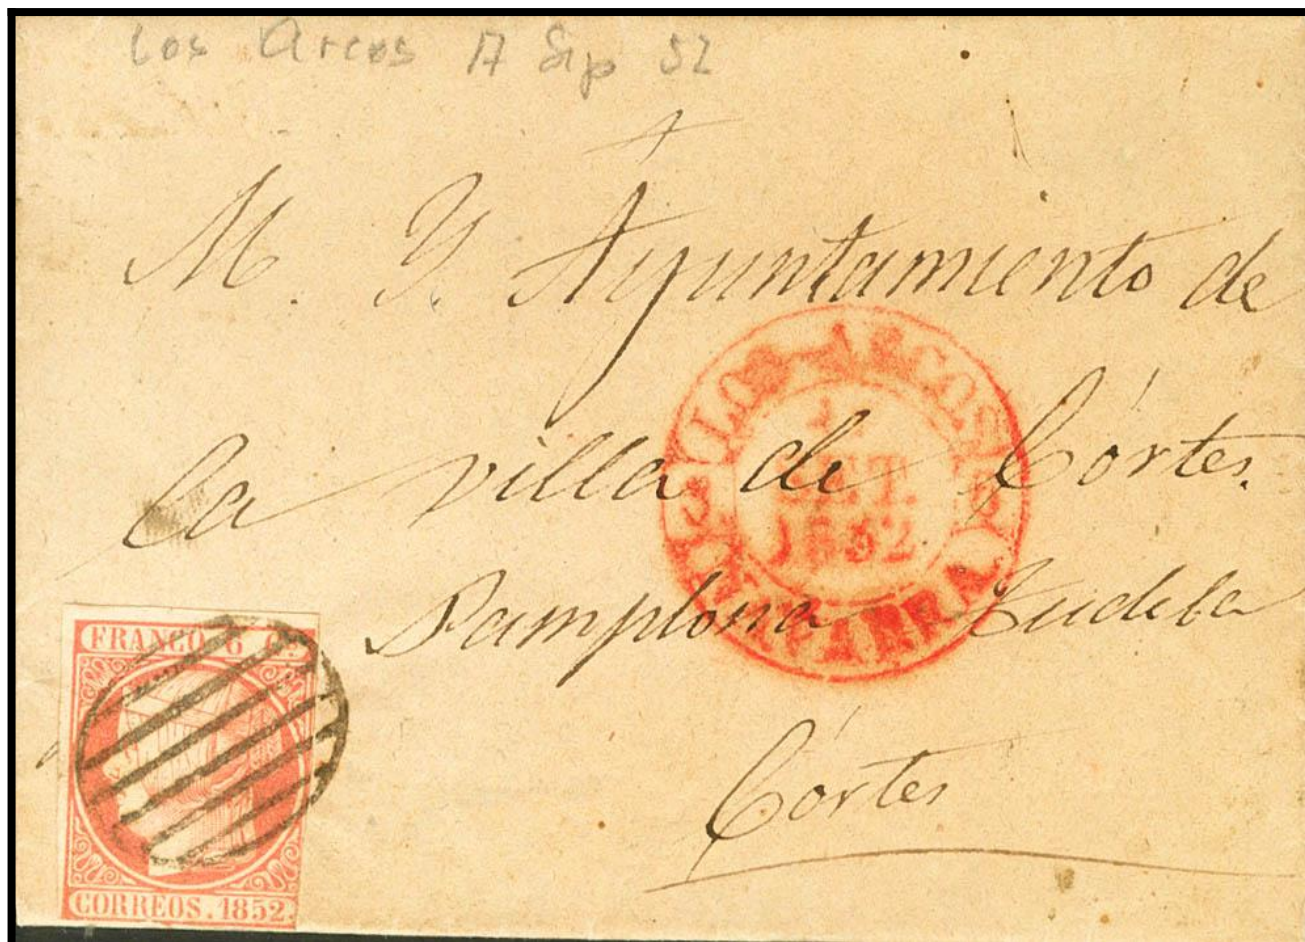 Los Arcos 17 Sep 52
M. Y. Ayuntamiento de
la villa de Córtes.
Pamplona Tudela
Córtes
LOS ARCOS
SET.
1852
NAVARRA
FRANCO 6 Cs
CORREOS. 1852.